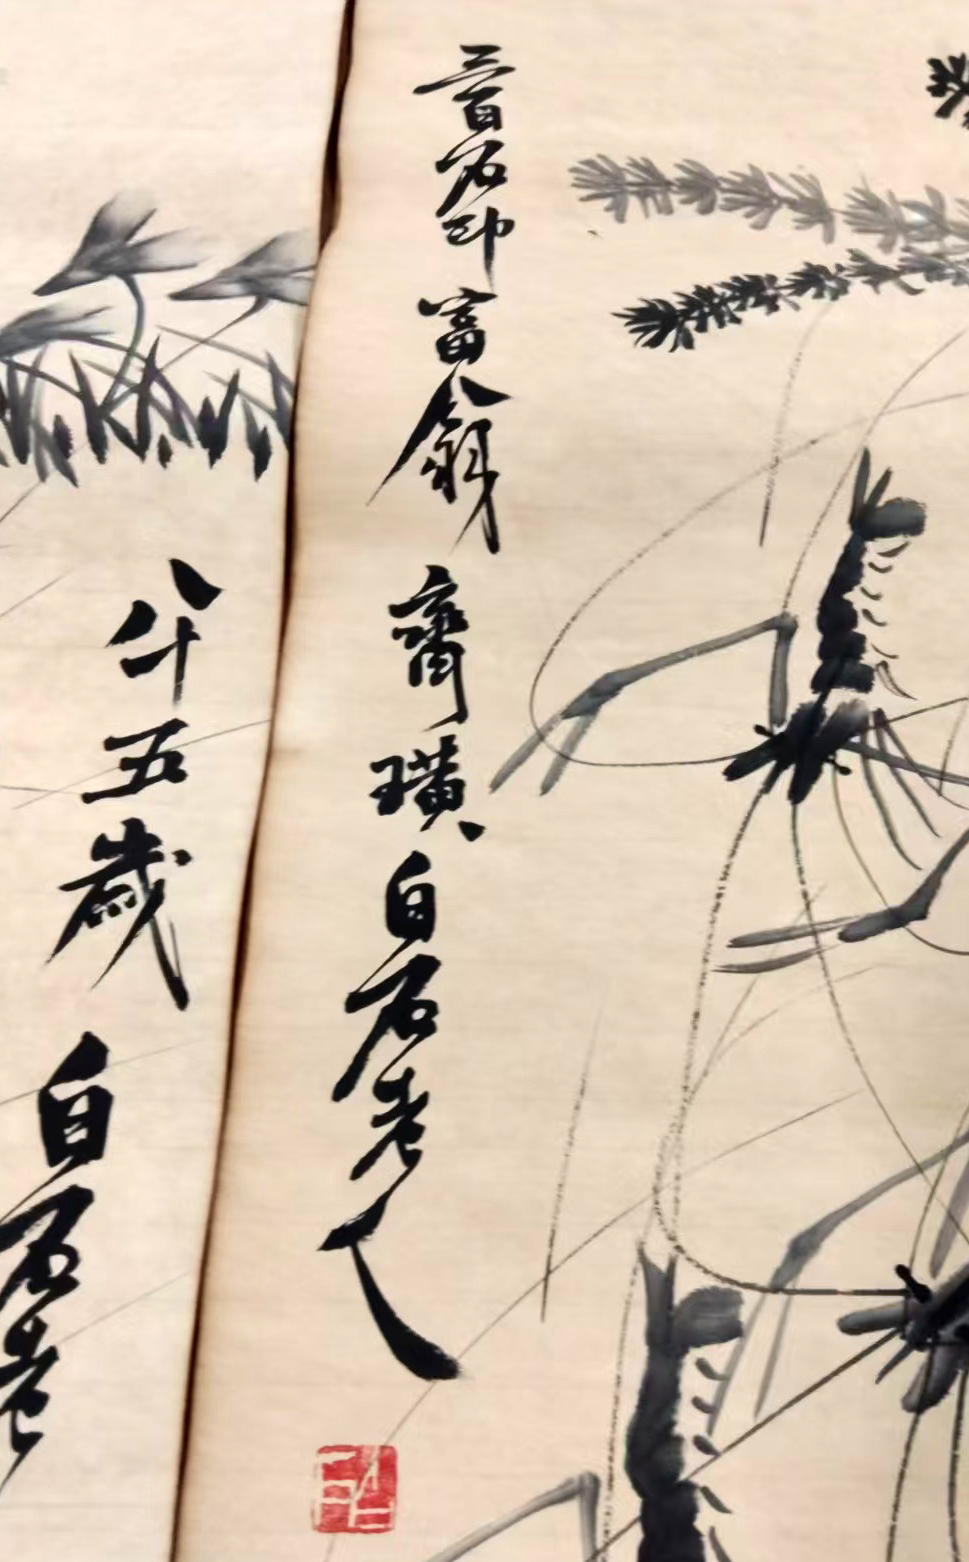 三百石印富翁齊璜白石老人
八十五歲白石老